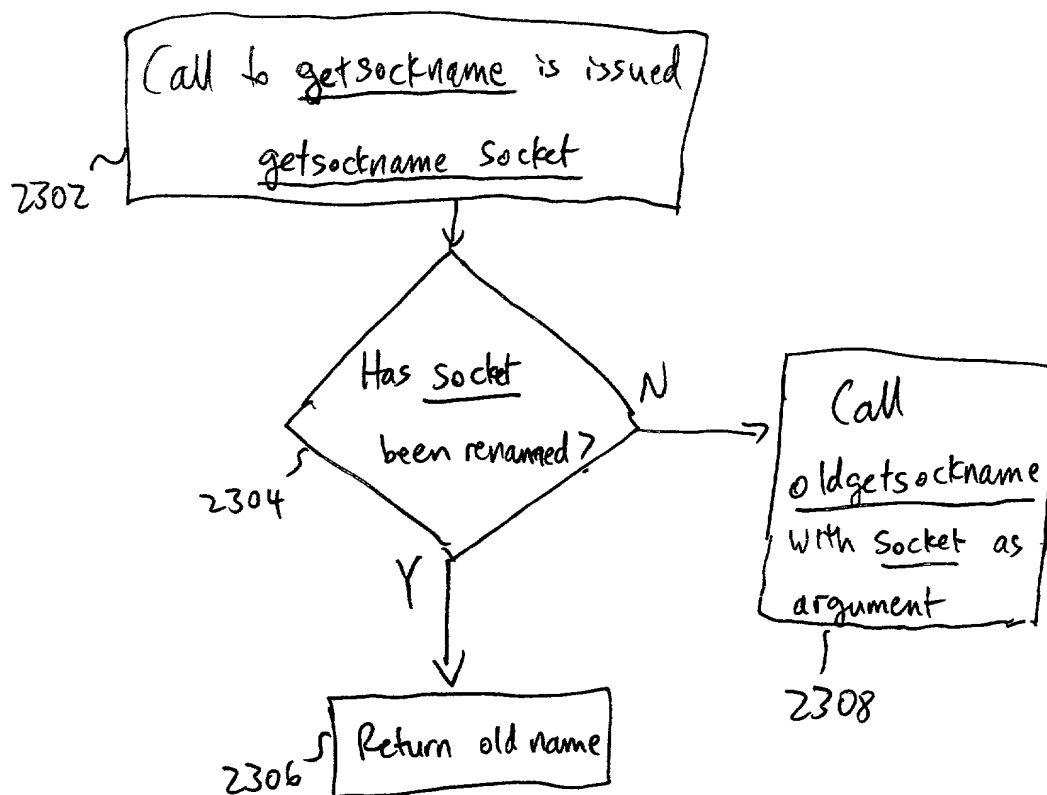 Call to getsockname is issued
getsockname socket
2302
Has socket
been renamed?
2304
N
Y
Call
oldgetsockname
with socket as
argument
2308
Return old name
2306